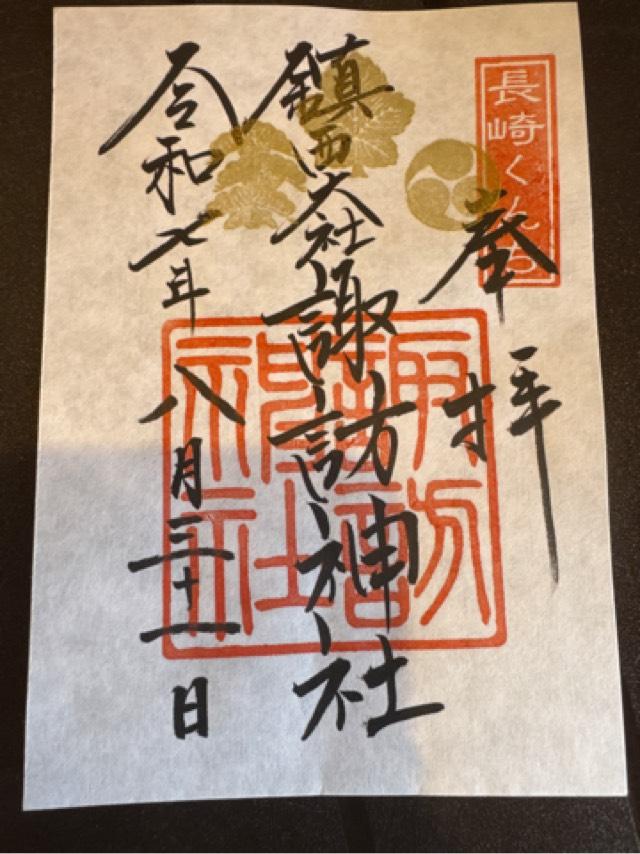 長崎くんち
奉拝
鎮西大社諏訪神社
令和七年八月三十一日
諏訪神社